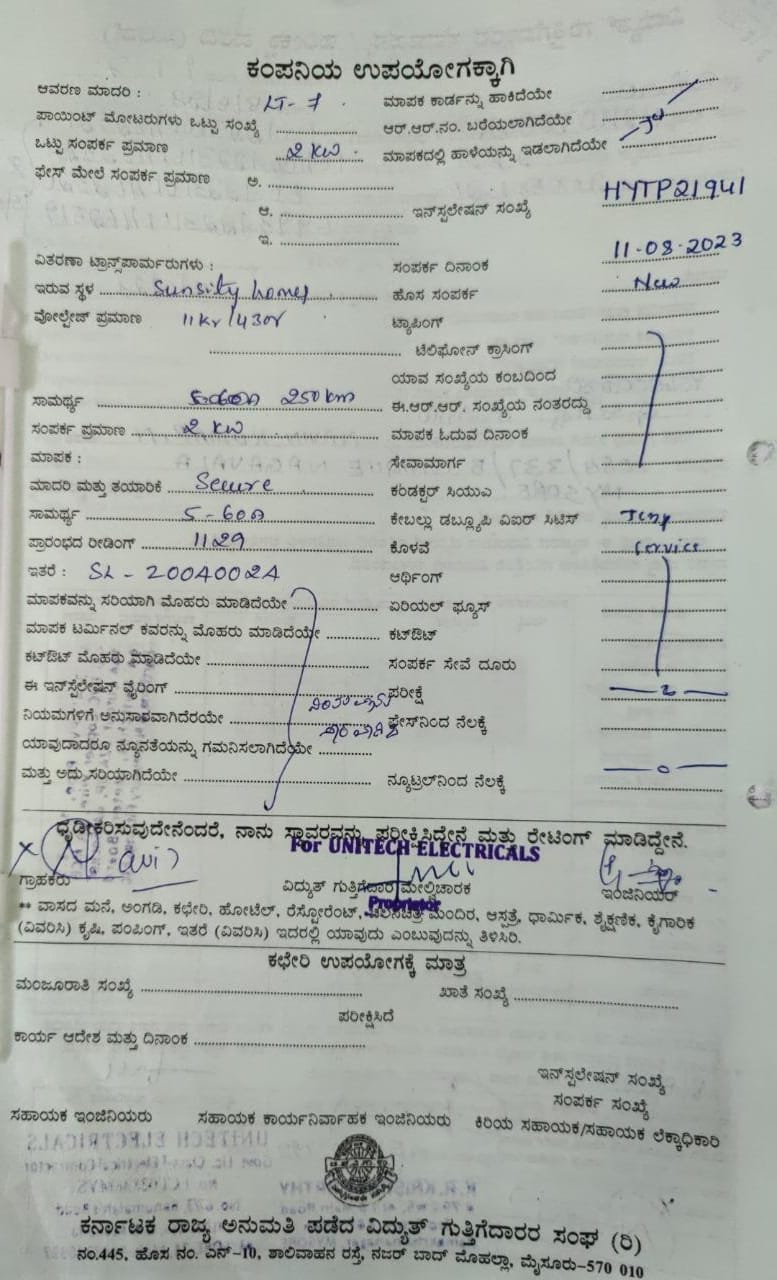 ಕಂಪನಿಯ ಉಪಯೋಗಕ್ಕಾಗಿ
ಆವರಣ ಮಾದರಿ : LT-7 ಮಾಪಕ ಕಾರ್ಡನ್ನು ಹಾಕಿದೆಯೇ
ಪಾಯಿಂಟ್ ಮೋಟರುಗಳು ಒಟ್ಟು ಸಂಖ್ಯೆ ಆರ್.ಆರ್.ನಂ. ಬರೆಯಲಾಗಿದೆಯೇ
ಒಟ್ಟು ಸಂಪರ್ಕ ಪ್ರಮಾಣ 2 KW ಮಾಪಕದಲ್ಲಿ ಹಾಳೆಯನ್ನು ಇಡಲಾಗಿದೆಯೇ
ಫೇಸ್ ಮೇಲೆ ಸಂಪರ್ಕ ಪ್ರಮಾಣ ಅ.
ಆ. ಇನ್‌ಸ್ಟಲೇಷನ್ ಸಂಖ್ಯೆ HYTP21941
ಇ.
ವಿತರಣಾ ಟ್ರಾನ್ಸ್‌ಪಾರ್ಮರುಗಳು : ಸಂಪರ್ಕ ದಿನಾಂಕ 11-08-2023
ಇರುವ ಸ್ಥಳ Sunsity homes ಹೊಸ ಸಂಪರ್ಕ New
ವೋಲ್ಟೇಜ್ ಪ್ರಮಾಣ 11Kv/430v ಟ್ಯಾಪಿಂಗ್
ಟೆಲಿಫೋನ್ ಕ್ರಾಸಿಂಗ್
ಯಾವ ಸಂಖ್ಯೆಯ ಕಂಬದಿಂದ
ಸಾಮರ್ಥ್ಯ 250 ಈ.ಆರ್.ಆರ್. ಸಂಖ್ಯೆಯ ನಂತರದ್ದು
ಸಂಪರ್ಕ ಪ್ರಮಾಣ 2 KW ಮಾಪಕ ಓದುವ ದಿನಾಂಕ
ಮಾಪಕ : ಸೇವಾಮಾರ್ಗ
ಮಾದರಿ ಮತ್ತು ತಯಾರಿಕೆ Secure ಕಂಡಕ್ಟರ್ ಸಿಯುಎ
ಸಾಮರ್ಥ್ಯ 5-60A ಕೇಬಲ್ಲು ಡಬ್ಲ್ಯೂಪಿ ವಿಐರ್ ಸಿಟಿಸ್ Temp
ಪ್ರಾರಂಭದ ರೀಡಿಂಗ್ 1129 ಕೊಳವೆ Service
ಇತರೆ : SL-20040024 ಆರ್ಥಿಂಗ್
ಮಾಪಕವನ್ನು ಸರಿಯಾಗಿ ಮೊಹರು ಮಾಡಿದೆಯೇ ಏರಿಯಲ್ ಫ್ಯೂಸ್
ಮಾಪಕ ಟರ್ಮಿನಲ್ ಕವರನ್ನು ಮೊಹರು ಮಾಡಿದೆಯೇ ಕಟ್‌ಔಟ್
ಕಟ್‌ಔಟ್ ಮೊಹರು ಮಾಡಿದೆಯೇ ಸಂಪರ್ಕ ಸೇವೆ ದೂರು
ಈ ಇನ್‌ಸ್ಟಲೇಷನ್ ವೈರಿಂಗ್ ಪರೀಕ್ಷೆ 2
ನಿಯಮಗಳಿಗೆ ಅನುಸಾರವಾಗಿದೆರಯೇ ಫೇಸ್‌ನಿಂದ ನೆಲಕ್ಕೆ
ಯಾವುದಾದರೂ ನ್ಯೂನತೆಯನ್ನು ಗಮನಿಸಲಾಗಿದೆಯೇ
ಮತ್ತು ಅದು ಸರಿಯಾಗಿದೆಯೇ ನ್ಯೂಟ್ರಲ್‌ನಿಂದ ನೆಲಕ್ಕೆ 0
ಧೃಡೀಕರಿಸುವುದೇನೆಂದರೆ, ನಾನು ಸ್ಥಾವರವನ್ನು ಪರೀಕ್ಷಿಸಿದ್ದೇನೆ ಮತ್ತು ರೇಟಿಂಗ್ ಮಾಡಿದ್ದೇನೆ.
For UNITECH ELECTRICALS
ಗ್ರಾಹಕರು ವಿದ್ಯುತ್ ಗುತ್ತಿಗೆದಾರ ಮೇಲ್ವಿಚಾರಕ ಇಂಜಿನಿಯರ್
Proprietor
** ವಾಸದ ಮನೆ, ಅಂಗಡಿ, ಕಛೇರಿ, ಹೋಟೆಲ್, ರೆಸ್ಟೋರೆಂಟ್, ಚಲನಚಿತ್ರ ಮಂದಿರ, ಆಸ್ಪತ್ರೆ, ಧಾರ್ಮಿಕ, ಶೈಕ್ಷಣಿಕ, ಕೈಗಾರಿಕ
(ವಿವರಿಸಿ) ಕೃಷಿ, ಪಂಪಿಂಗ್, ಇತರೆ (ವಿವರಿಸಿ) ಇದರಲ್ಲಿ ಯಾವುದು ಎಂಬುವುದನ್ನು ತಿಳಿಸಿರಿ.
ಕಛೇರಿ ಉಪಯೋಗಕ್ಕೆ ಮಾತ್ರ
ಮಂಜೂರಾತಿ ಸಂಖ್ಯೆ ಖಾತೆ ಸಂಖ್ಯೆ
ಪರೀಕ್ಷಿಸಿದೆ
ಕಾರ್ಯ ಆದೇಶ ಮತ್ತು ದಿನಾಂಕ
ಇನ್‌ಸ್ಟಲೇಷನ್ ಸಂಖ್ಯೆ
ಸಂಪರ್ಕ ಸಂಖ್ಯೆ
ಸಹಾಯಕ ಇಂಜಿನಿಯರು ಸಹಾಯಕ ಕಾರ್ಯನಿರ್ವಾಹಕ ಇಂಜಿನಿಯರು ಕಿರಿಯ ಸಹಾಯಕ/ಸಹಾಯಕ ಲೆಕ್ಕಾಧಿಕಾರಿ
ಕರ್ನಾಟಕ ರಾಜ್ಯ ಅನುಮತಿ ಪಡೆದ ವಿದ್ಯುತ್ ಗುತ್ತಿಗೆದಾರರ ಸಂಘ (ರಿ)
ನಂ.445, ಹೊಸ ನಂ. ಎನ್-10, ಶಾಲಿವಾಹನ ರಸ್ತೆ, ನಜರ್ ಬಾದ್ ಮೊಹಲ್ಲಾ, ಮೈಸೂರು-570 010